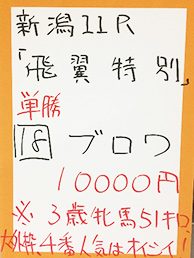 新潟11R
「飛翼特別」
単勝
18 ブロワ
10000円
※3歳牝馬51キロ
大外枠、4番人気はオイシイ!